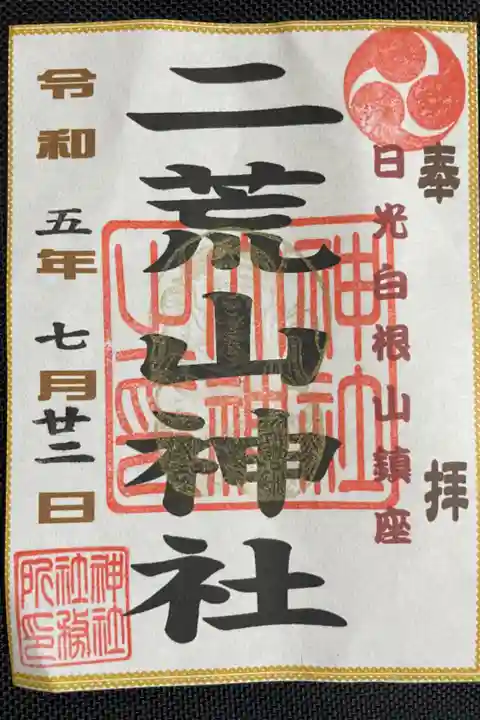 奉拝
日光白根山鎮座
二荒山神社
令和五年七月廿二日
神社
社務
所印